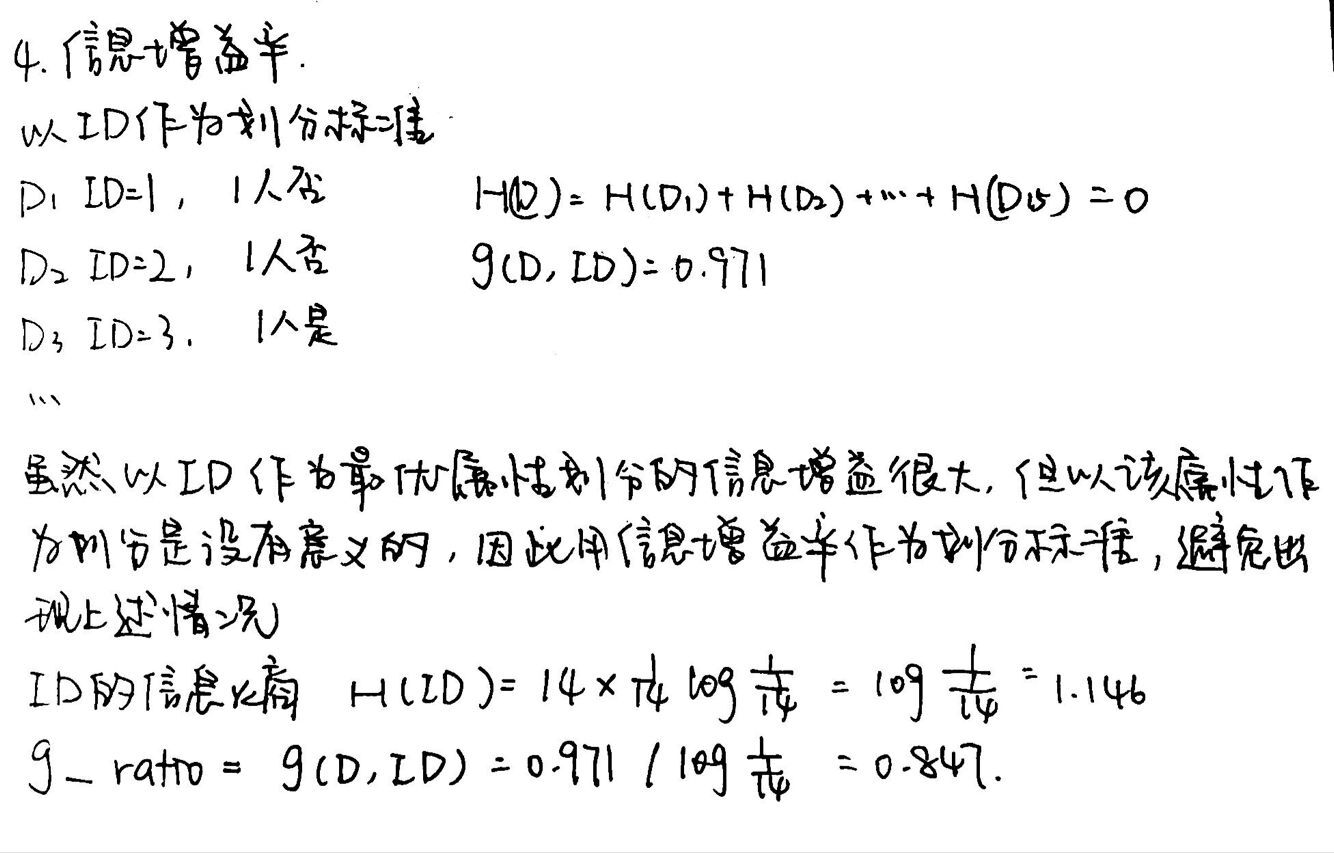 4. 信息增益率.
以ID作为划分标准
D₁ ID=1, 1人否 H(D)= H(D₁)+H(D₂)+…+H(D₁₅)=0
D₂ ID=2, 1人否 g(D, ID)=0.971
D₃ ID=3. 1人是
…
虽然以ID作为最优属性划分的信息增益很大, 但以该属性作
为划分是没有意义的, 因此用信息增益率作为划分标准, 避免出
现上述情况
ID的信息熵 H(ID)= 14 × 1/14 log 1/14 = log 1/14 = 1.146
g_ratio = g(D, ID) = 0.971 / log 1/14 = 0.847.